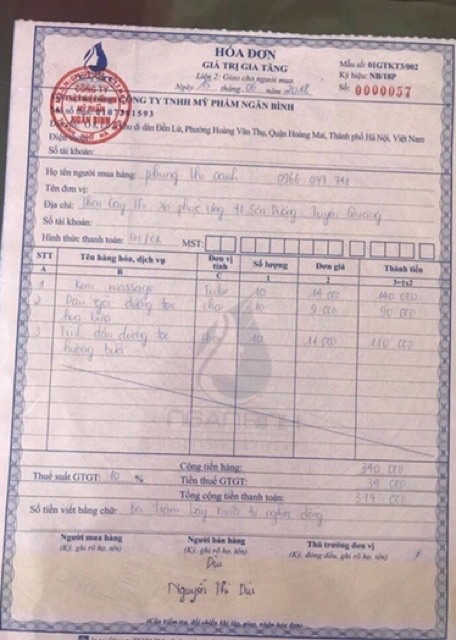 HÓA ĐƠN
GIÁ TRỊ GIA TĂNG
Liên 2: Giao cho người mua
Ngày 15 tháng 06 năm 2018
Mẫu số: 01GTKT3/002
Ký hiệu: NB/18P
Số: 0000057
CÔNG TY
MỸ PHẨM
NGÂN BÌNH
CÔNG TY TNHH MỸ PHẨM NGÂN BÌNH
di dân Đền Lừ, Phường Hoàng Văn Thụ, Quận Hoàng Mai, Thành phố Hà Nội, Việt Nam
Điện
Số tài khoản:
Họ tên người mua hàng: phùng thị oanh 0966 097 791
Tên đơn vị:
Địa chỉ: Thôn Cây Thị xã phúc ứng H Sơn Dương Tuyên Quang
Số tài khoản:
Hình thức thanh toán: TM/CK MST:
STT Tên hàng hóa, dịch vụ Đơn vị tính Số lượng Đơn giá Thành tiền
A B C 1 2 3=1x2
1 Kem massage 10 14 000 140 000
2 Dầu gội dưỡng tóc chai 10 9 000 90 000
hoa bưởi
3 Tinh dầu dưỡng tóc chai 10 11 000 110 000
hương bưởi
NGANBINH
Cộng tiền hàng: 340 000
Thuế suất GTGT: 10 % Tiền thuế GTGT: 34 000
Tổng cộng tiền thanh toán: 374 000
Số tiền viết bằng chữ: Ba trăm bảy mươi tư nghìn đồng
Người mua hàng Người bán hàng Thủ trưởng đơn vị
(Ký, ghi rõ họ, tên) (Ký, ghi rõ họ, tên) (Ký, đóng dấu, ghi rõ họ, tên)
Dịu
Nguyễn Thị Dịu
(Cần kiểm tra, đối chiếu khi lập, giao, nhận hóa đơn)